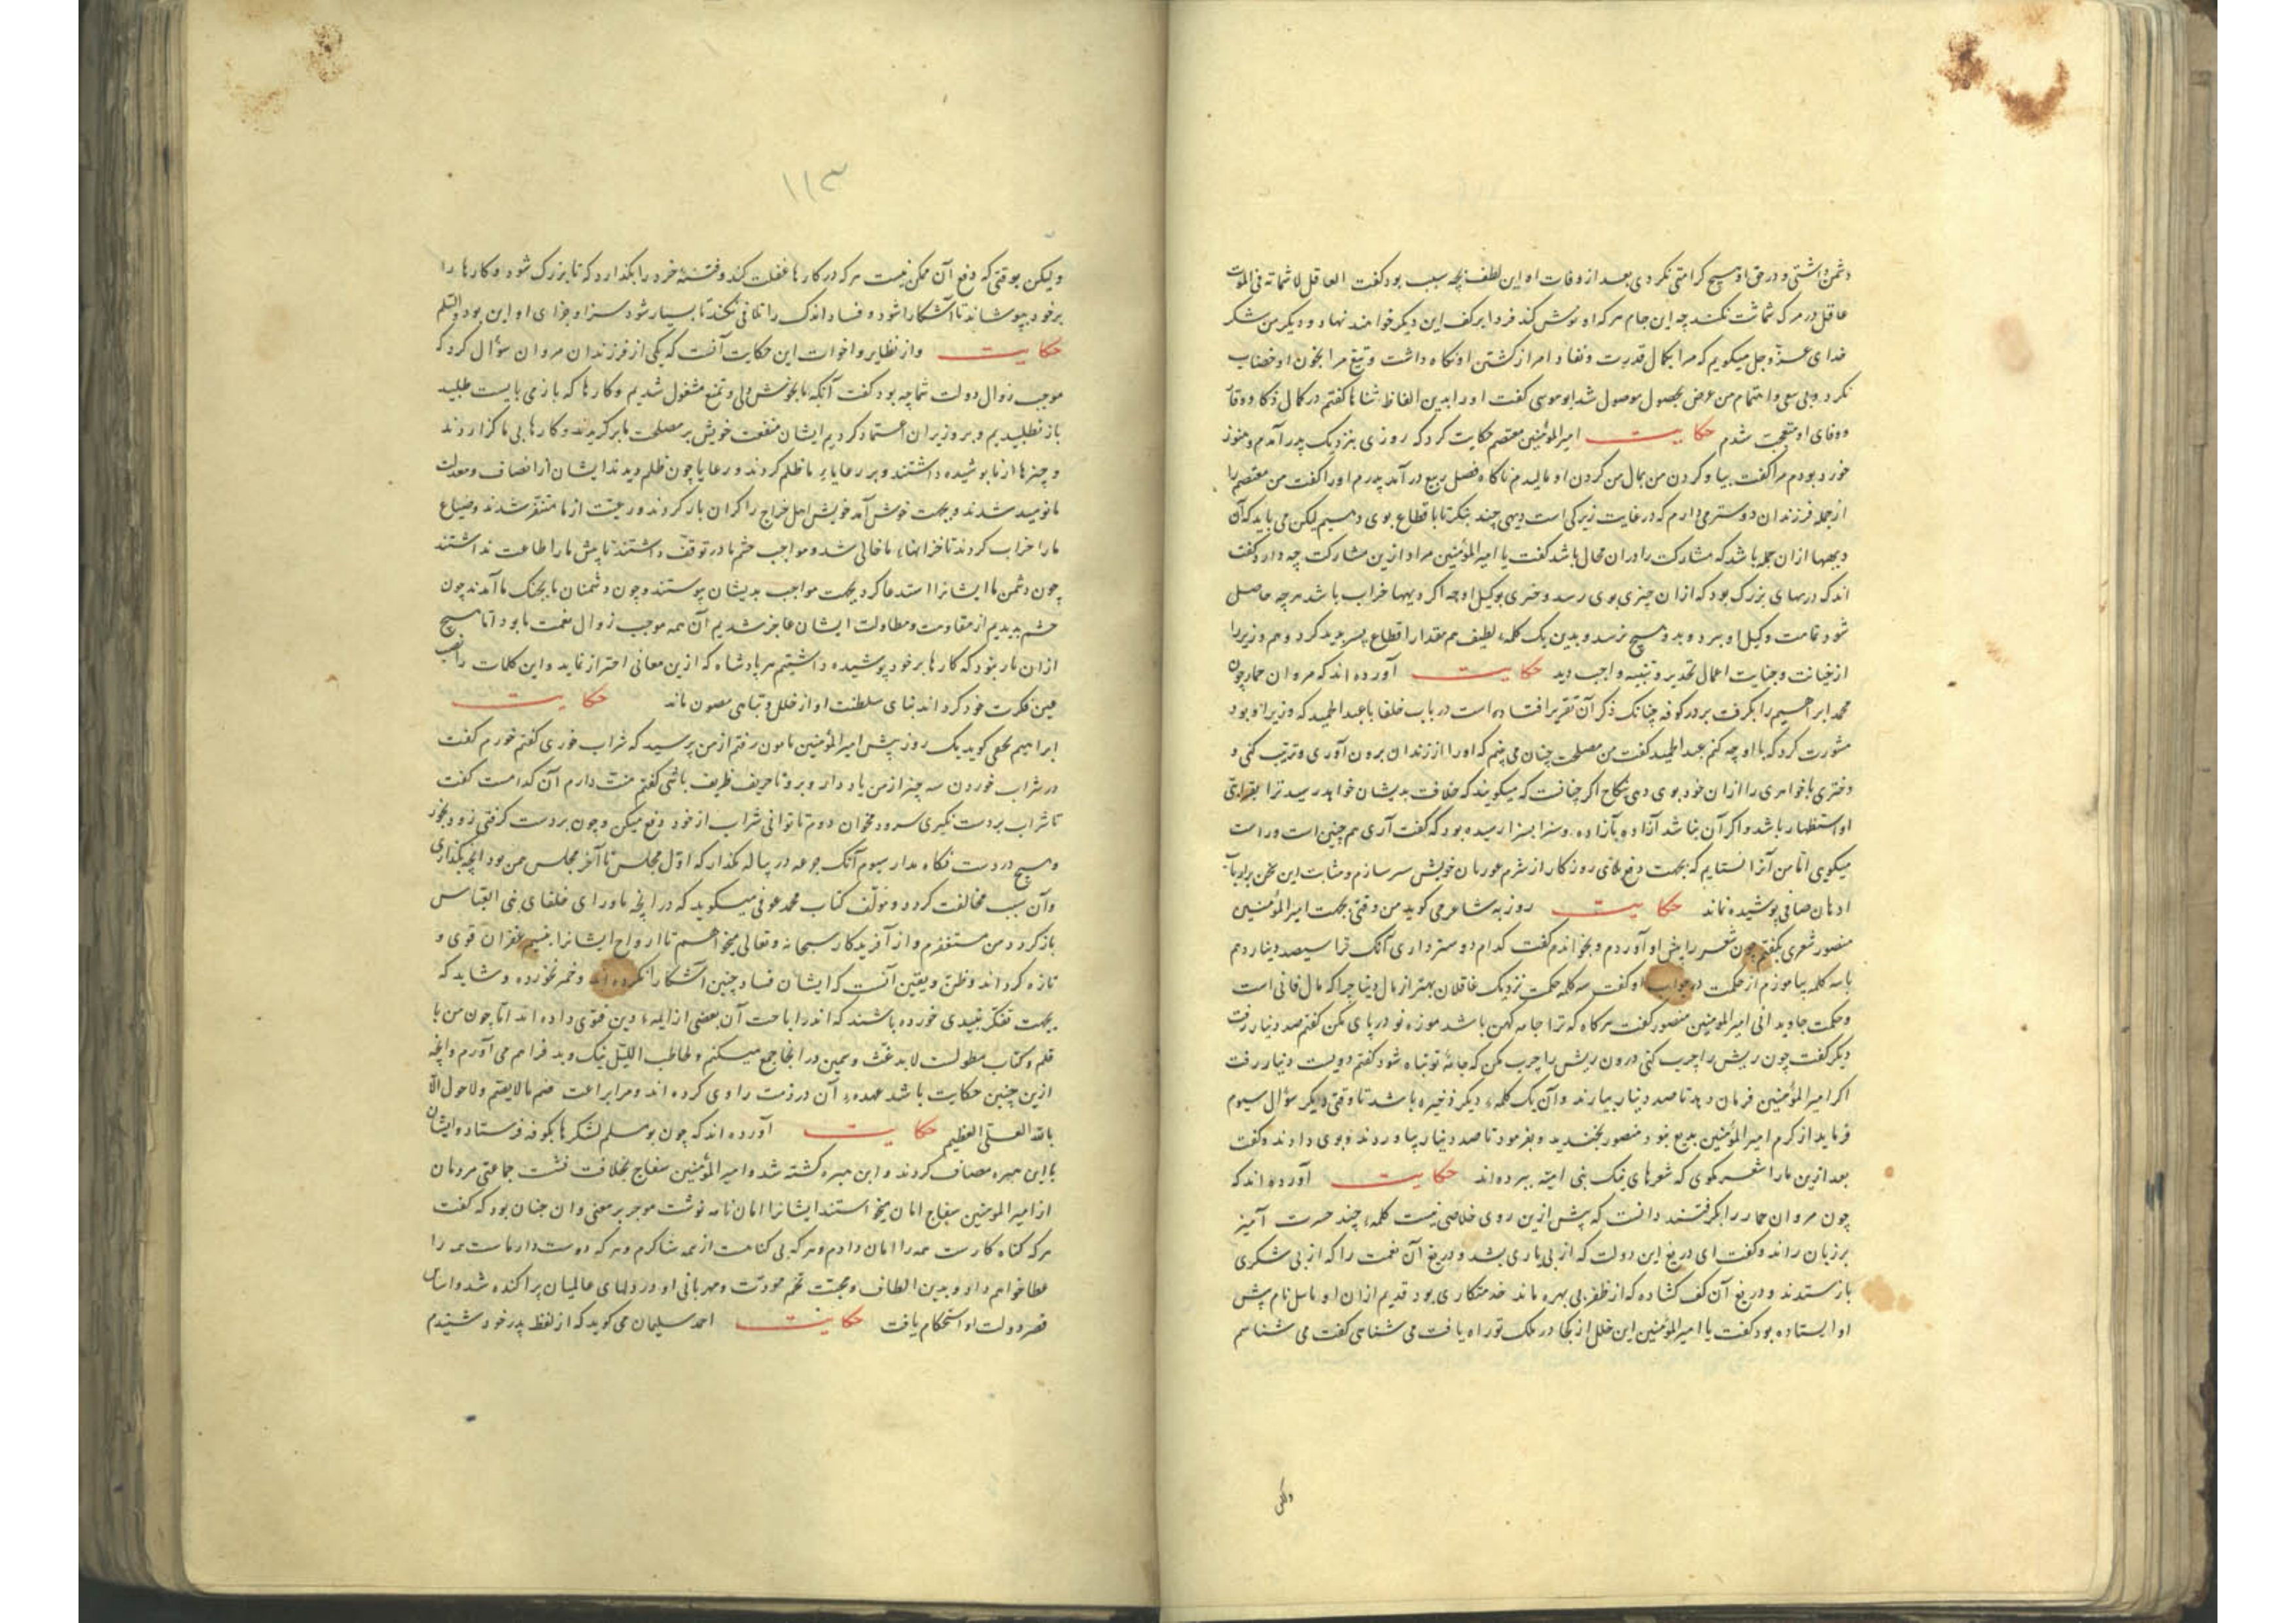 دشمن داشتی و در حق او هیچ کرامتی نکردی بعد از وفات او این لطف بچه سبب بود گفت العاقل لا شماتة فی الموت
عاقل در مرک شماتت نکند چه این جام هرکه او نوش کند فردا بر کف این دیکر خواهند نهاد و دیکر من شکر
خدای عزّ وجل میکویم که مرا بکمال قدرت و نفاد امر از کشتن او نکاه داشت و تیغ مرا بخون او خضاب
نکرد و بی سعی و اهتمام من غرض بحصول موصول شد ابو موسی گفت او را بدین الفاظ ثناها گفتم در کمال ذکا و وفا
ووفای او متعجب شدم حکایت امیر المؤمنین معتصم حکایت کرد که روزی بنزدیک پدر آمدم و هنوز
خورد بودم مرا گفت بیا و کردن من بمال من کردن او مالیدم ناکاه فضل ربیع در آمد پدرم او را گفت من معتصم را
از جمله فرزندان دوستر می دارم که در غایت زیرکی است دیهی چند بنکر تا باقطاع بوی دهیم لیکن می باید که آن
دیهها ازان جمله باشد که مشارکت را دران محال باشد گفت یا امیر المؤمنین مراد ازین مشارکت چه دارد گفت
اندک دربهای بزرک بود که ازان چیزی بوی رسد و خری بوکیل او چه اکر دیهها خراب باشد هرچه حاصل
شود تمامت وکیل او ببرد و بدو هیچ نرسد و بدین یک کلمهٔ لطیف هم مقدار اقطاع پسر پدید کرد و هم وزیر را
از خیانت و جنایت اعمال تحذیر و تنبیه واجب دید حکایت آورده اند که مروان حمار چون
محمد ابراهیم را بکرفت بر در کوفه چنانک ذکر آن تقریر افتاده است در باب خلفا با عبد الحمید که وزیر او بود
مشورت کرد که با او چه کنم عبد الحمید گفت من مصلحت چنان می بینم که او را از زندان برون آوری و تربیت کنی و
دختری یا خواهری را ازان خود بوی دهی بنکاح اکر چنانست که میکویند که خلافت بدیشان خواهد رسید ترا بقرابت
او استظهار باشد و اکر آن نباشد آزاده بآزاده و سزا بسزا رسیده بود که گفت آری هم چنین است و راست
میکویی اما من آنرا نستایم که بجهت دفع بلای روزکار از شرم عورتان خویش سر سازم و مثابت این سخن بر ارباب
اذهان صافی پوشیده نماند حکایت روزبه شاعر می کوید من وقتی بجهت امیر المؤمنین
منصور شعری بکفتم چون شعر را پیش او آوردم و بخواندم گفت کدام دوستر داری آنک ترا سیصد دینار دهم
یا سه کلمه بیاموزم از حکمت در جواب او گفتم سه کلمه حکمت نزدیک عاقلان بهتر از مال دنیا چرا که مال فانی است
و حکمت جاویدانی امیر المومنین منصور گفت هرکاه که ترا جامه کهن باشد موزه نو در پای مکن گفتم صد دینار رفت
دیکر گفت چون ریش را چرب کنی درون ریش را چرب مکن که جامهٔ تو تباه شود گفتم دویست دینار رفت
اکر امیر المؤمنین فرمان دهد تا صد دینار بیارند و آن یک کلمهٔ دیکر ذخیره باشد تا وقتی دیکر سؤال سیوم
فرماید از کرم امیر المؤمنین بدیع نبود منصور بخندید و بفرمود تا صد دینار بیاوردند و بوی دادند و گفت
بعد ازین ما را شعر مکوی که شعرهای نیک بنی امیّه ببرده اند حکایت آورده اند که
چون مروان حمار را بکرفتند دانست که بیش ازین روی خلاصی نیست کلمهٔ چند حسرت آمیز
بر زبان راند و گفت ای دریغ این دولت که از بی یاری بشد و دریغ آن نعمت را که از بی شکری
بازستدند و دریغ آن کف کشاده که از ظفر بی بهره ماند خدمتکاری بود قدیم ازان او باسل نام پیش
او ایستاده بود گفت یا امیر المؤمنین این خلل از کجا در ملک تو راه یافت می شناسی گفت می شناسم
ولیکن
۱۱۳
ولیکن بوقتی که دفع آن ممکن نیست هرکه در کارها غفلت کند و فتنهٔ خرد را بکذارد که تا بزرک شود و کارها را
برخود بپوشاند تا آشکارا شود و فساد اندک را تلافی نکند تا بسیار شود سزا و جزای او این بود والسّلم
حکایت واز نظایر و اخوات این حکایت آنست که یکی از فرزندان مروان سؤال کرد که
موجب زوال دولت شما چه بود گفت آنکه ما بخوش دلی و تمتع مشغول شدیم و کارها که باز می بایست طلبید
باز نطلبیدیم و بر وزیران اعتماد کردیم ایشان منفعت خویش بر مصلحت ما برکزیدند و کارها بی ما کزاردند
و چیزها از ما پوشیده داشتند و بر رعایاء ما ظلم کردند و رعایا چون ظلم دیدند ایشان از انصاف و معدلت
ما نومید شدند و بجهت خوش آمد خویش اهل خراج را کران بار کردند و رعیت از ما متنفر شدند و ضیاع
ما را خراب کردند تا خزانهاء ما خالی شد و مواجب حشم ما در توقف داشتند تا پیش ما را طاعت نداشتند
چون دشمن ما ایشانرا استدعا کرد بجهت مواجب بدیشان پیوستند و چون دشمنان ما بجنک ما آمدند چون
حشم بدیدیم از مقاومت و مطاولت ایشان عاجز شدیم آن همه موجب زوال نعمت ما بود اما هیچ
ازان بتر نبود که کارها بر خود پوشیده داشتیم هر پادشاه که ازین معانی احتراز نماید و این کلمات را نصب
عین فکرت خود کرداند بنای سلطنت او از خلل و تباهی مصون ماند حکایت
ابراهیم کوید یک روز پیش امیر المؤمنین مامون رفتم از من پرسید که شراب خوری گفتم خورم گفت
در شراب خوردن سه چیز از من یاد دار و برو تا حریف ظریف باشی گفتم منت دارم آن کدامست گفت
تا شراب بر دست نکیری سرود مخوان دوم تا توانی شراب از خود دفع میکن و چون بر دست کرفتی زود بخور
و هیچ در دست نکاه مدار سیوم آنک جرعه در پیاله مکذار که اوّل مجلس تا آخر مجلس من بود آنچه بکذاری
و آن سبب مخالفت کردد و مؤلف کتاب محمد عوفی میکوید که در آنچه ماورای خلفای بنی العبّاس
باز کردد من مستغفرم و از آفریدکار سبحانه و تعالی میخواهم تا ارواح ایشانرا بنسیم غفران قوی و
تازه کرداند و ظن و یقین آنست که ایشان فساد چنین آشکارا نکرده اند و خمر نخورده و شاید که
بجهت تفکر نبیدی خورده باشند که اندر اباحت آن بعضی از ایمهٔ دین فتوی داده اند اما چون من با
قلم و کتاب مطولت لابد غث و سمین در اینجا جمع میکنم و لحاطب اللیل نیک و بد فراهم می آورم و آنچه
ازین چنین حکایت باشد عهدهٔ آن در ذمت راوی کرده اند و مرا براعت ضم ما لا یضم و لا حول الّا
بالله العلی العظیم حکایت آورده اند که چون بو مسلم لشکرها بکوفه فرستاد و ایشان
با ابن هبیره مصاف کردند و ابن هبیره کشته شد و امیر المؤمنین سفاح بخلافت نشست جماعتی مردمان
از امیر المومنین سفاح امان میخواستند ایشانرا امان نامه نوشت موجز بر معنی و ان چنان بود که گفت
هرکه کناه کارست همه را امان دادم و هرکه بی کناهست از همه شاکرم و هرکه دوست دار ماست همه را
عطا خواهم داد و بدین الطاف و محبّت تخم مودّت و مهربانی او در دلهای عالمیان پراکنده شد و اساس
قصر دولت او استحکام یافت حکایت احمد سلیمان می کوید که از لفظ پدر خود شنیدم